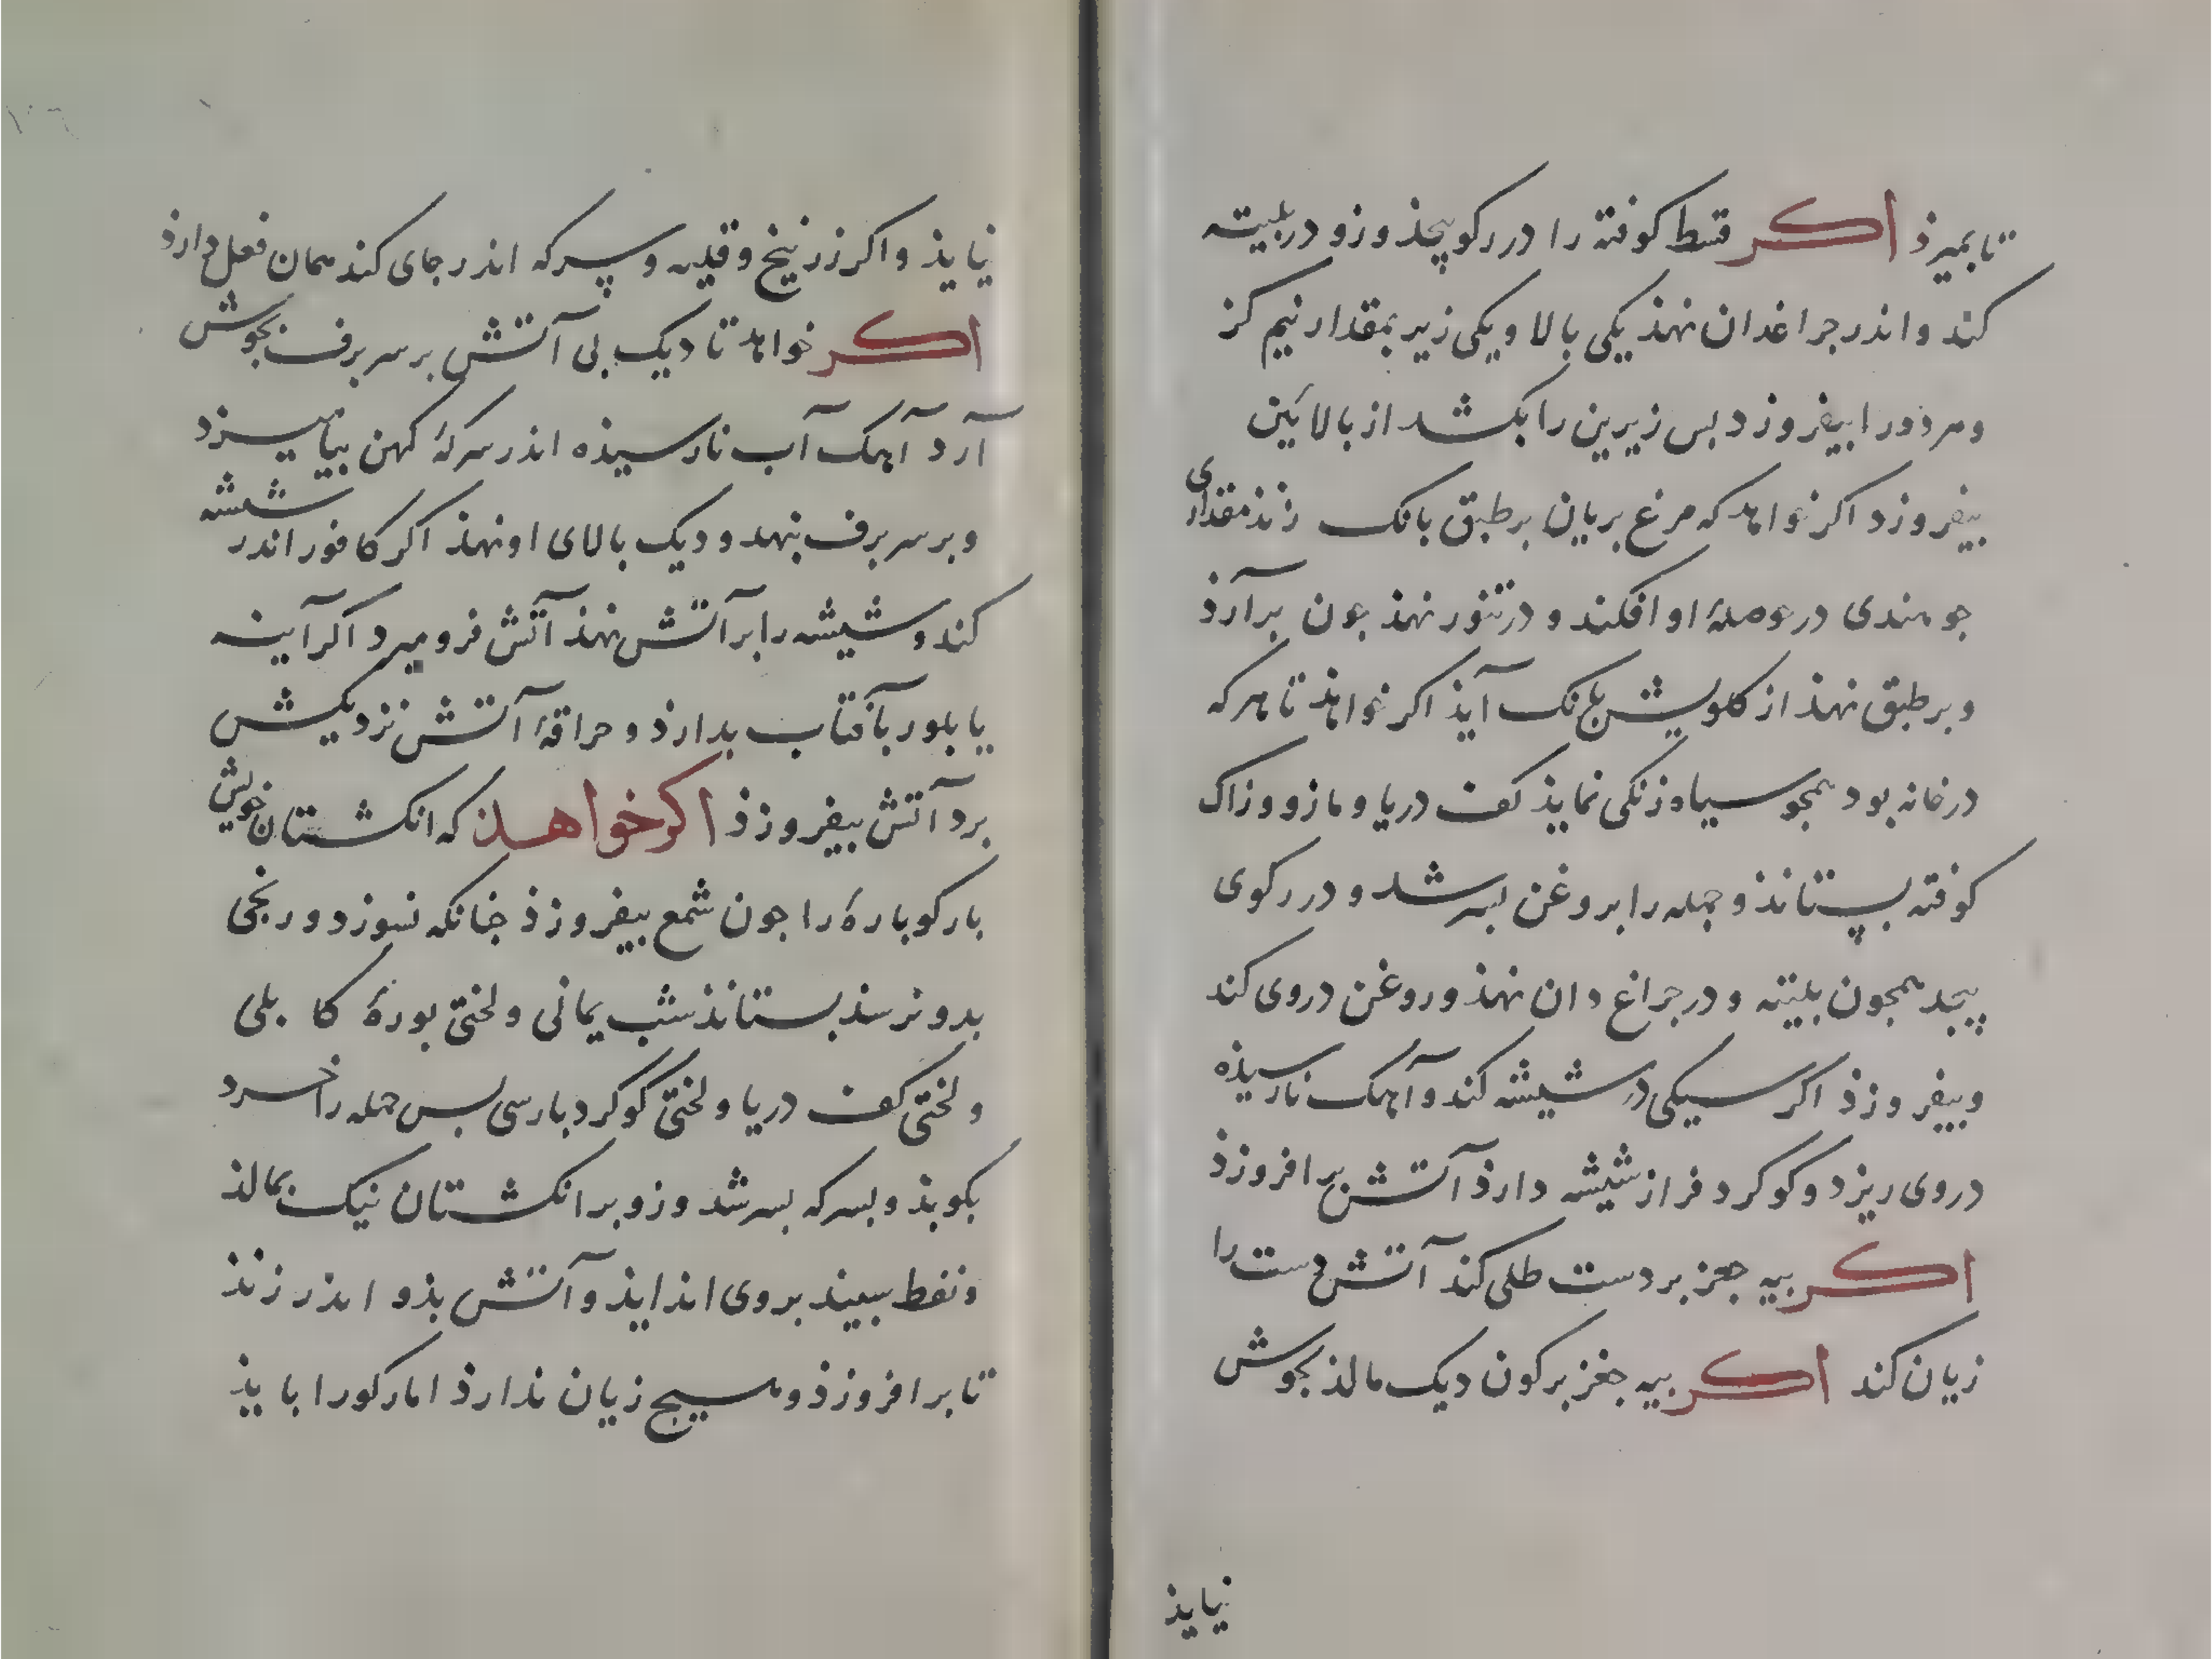 تا بمیرذ اکر قسط کوفته را در رکو پیچذ و زو دربلیته
کند و اندر جراغدان نهذ یکی بالا و یکی زیر بمقدار نیم کز
و هر دو را بیفروزد بس زیرین را بکشد از بالائین
بیفروزد اکر خواهد که مرغ بریان بر طبق بانک زند مقداری
جو هندی در حوصلهٔ او افکند و در تنور نهذ جون برآرذ
و بر طبق نهذ از کلویش بانک آیذ اکر خواهذ تا هر که
در خانه بود همجو سیاه زنکی نمایذ کف دریا و مازو و زاک
کوفته بستانذ و جمله را بروغن بسرشد و در رکوی
پیجد همجون بلیته و در جراغ دان نهذ و روغن در وی کند
و بیفروزذ اکر سیکی در شیشه کند و آهک نارسیذه
در وی ریزد و کوکرد فراز شیشه دارذ آتش برافروزذ
اکر بیه جغز بر دست طلی کند آتش دست را
زیان کند اکر بیه جغز بر کون دیک مالذ بجوش
نیایذ
نیایذ و اکر زرنیخ و قلیه و سرکه اندر جای کند همان فعل دارذ
اکر خواهد تا دیک بی آتش بر سر برف بجوش
آرد آهک آب نارسیذه اندر سرکهٔ کهن بیامیزد
و بر سر برف بنهد و دیک بالای او نهذ اکر کافور اندر شیشه
کند و شیشه را بر آتش نهذ آتش فرو میرد اکر آینه
یا بلور بآفتاب بدارذ و حراقهٔ آتش نزدیکش
برد آتش بیفروزذ اکر خواهذ که انکشتان خویش
بارکوبارهٔ را جون شمع بیفروزذ جنانکه نسوزد و رنجی
بدو نرسذ بستانذ شب یمانی و لختی بورهٔ کابلی
و لختی کف دریا و لختی کوکرد بارسی بس جمله را خرد
بکوبذ و بسرکه بسرشد و زو بر انکشتان نیک بمالذ
و نفط سبیند بروی اندایذ و آتش بذو اندر زنذ
تا برافروزذ و هیسج زیان ندارذ اما رکو را بایذ